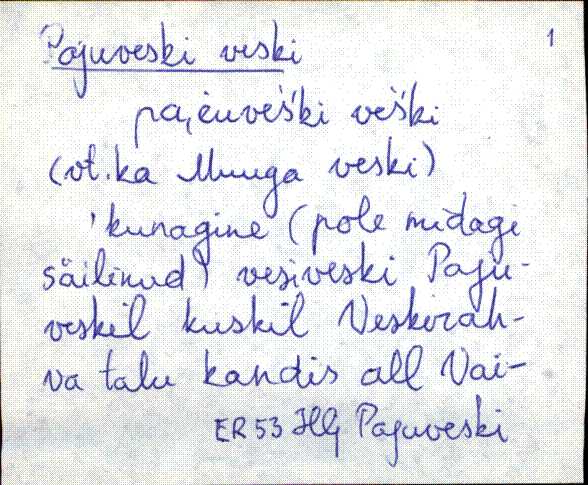 Pajuveski veski 1
pa,i̯uveš́ki veš́ki
(vt. ka Muuga veski)
'kunagine (pole midagi
säilinud) vesiveski Paju-
veskil kuskil Veskirah-
va talu kandis all Vai-
ER 53 Pajuveski